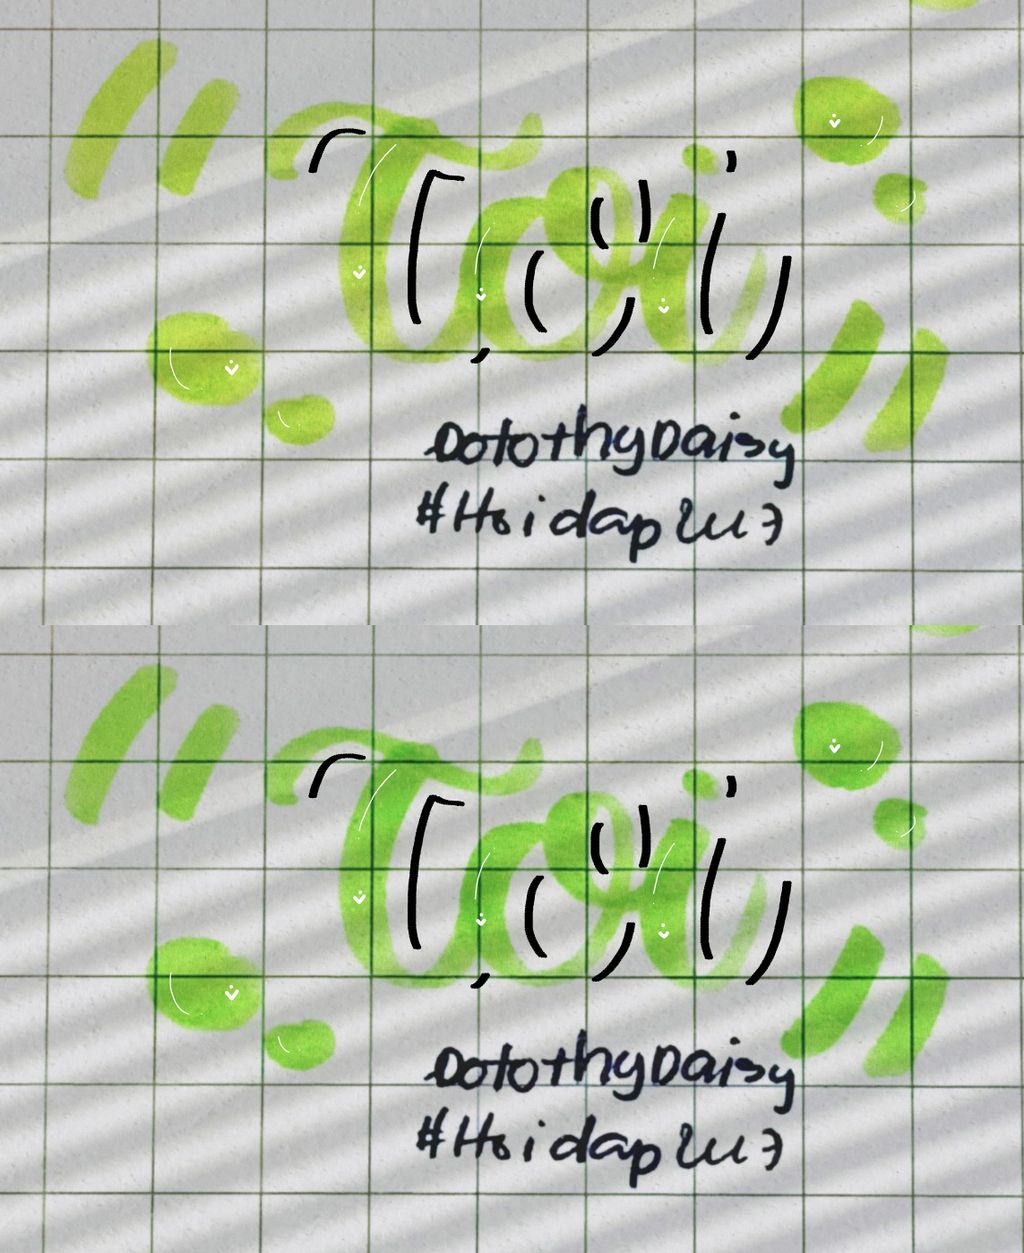 "Toi"
DorothyDaisy
#Hoidap247
"Toi"
DorothyDaisy
#Hoidap247